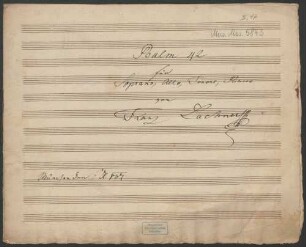 Mus. Mss. 5843
Psalm 42
für
Soprano, Alto, Tenore, Basso
von
Franz Lachner
München den